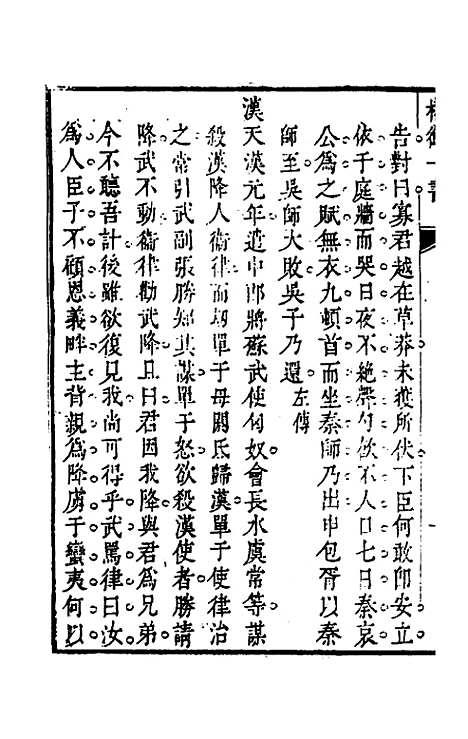 告對曰寡君越在草莽未獲所伏下臣何敢卽安立
依于庭牆而哭日夜不絕聲勺飮不入口七日秦哀
公爲之賦無衣九頓首而坐秦師乃出申包胥以秦
師至吳師大敗吳子乃還左傳
漢天漢元年遣中郎將蘇武使匈奴會長水虞常等謀
殺漢降人衞律而刼單于母閼氏歸漢單于使律治
之常引武副張勝知其謀單于怒欲殺漢使者勝請
降武不動衞律勸武降且曰君因我降與君爲兄弟
今不聽吾計後雖欲復見我尚可得乎武罵律曰汝
爲人臣子不顧恩義畔主背親爲降虜于蠻夷何以